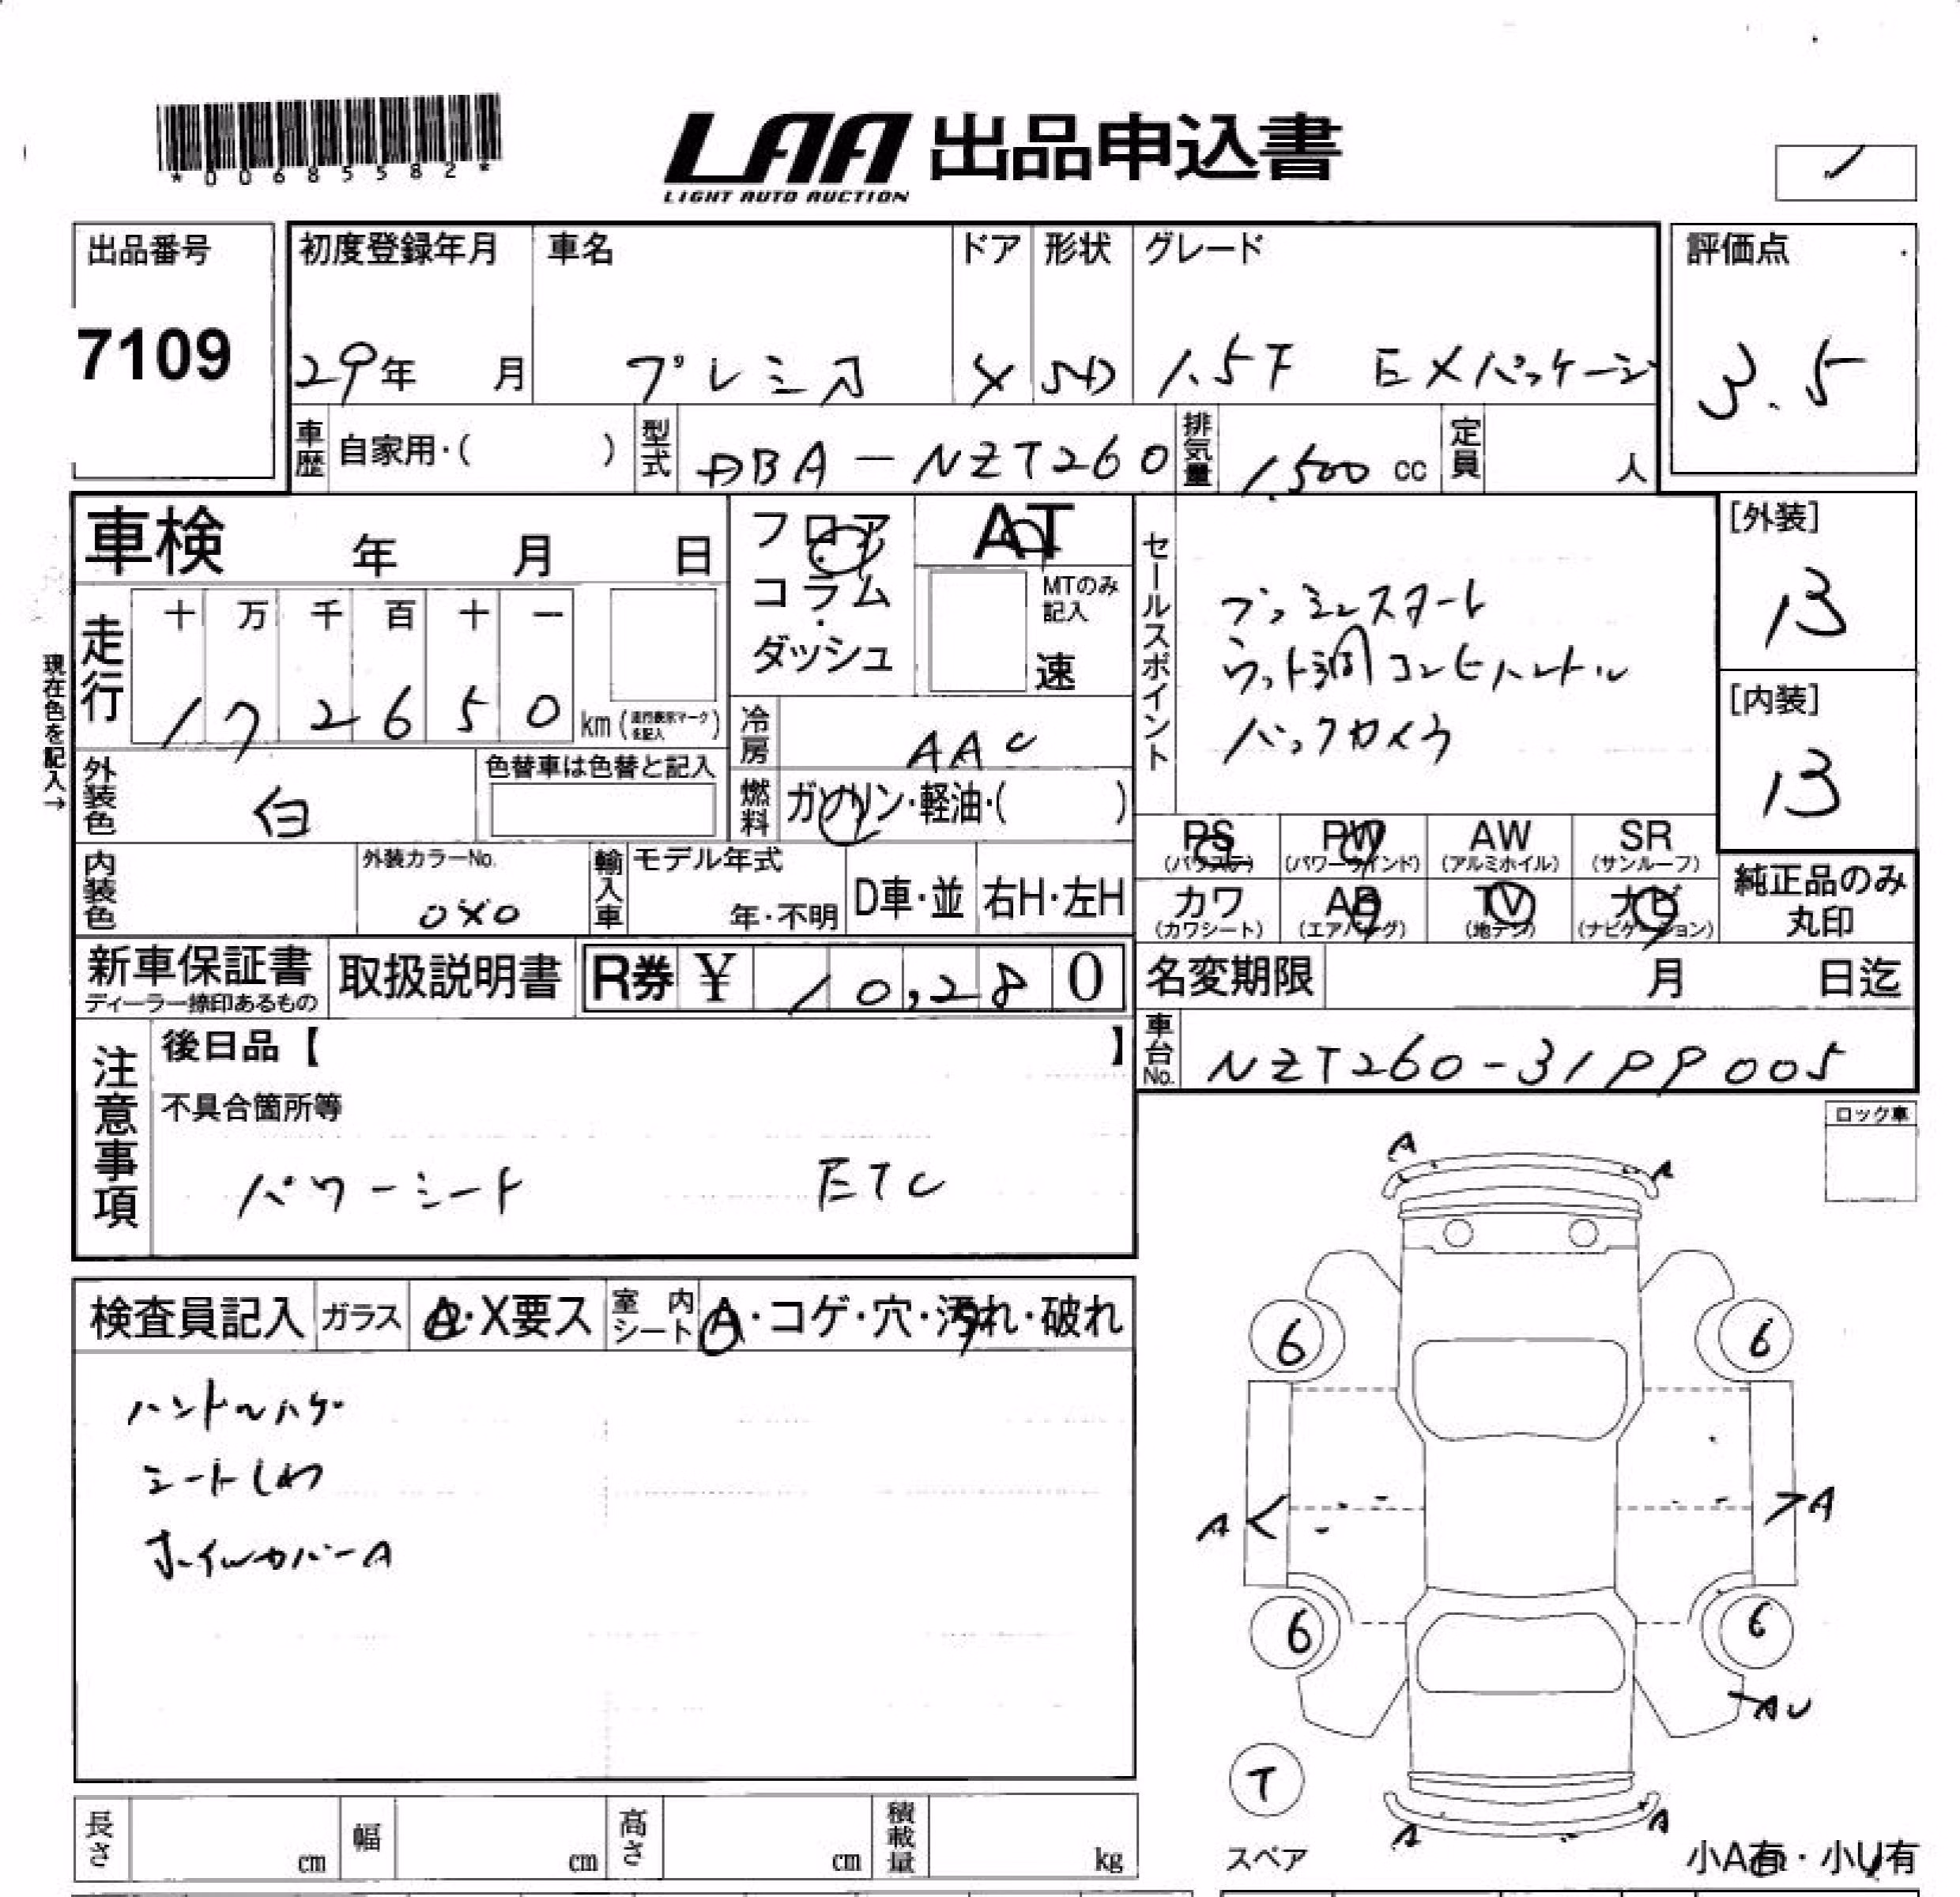 *00685582*
LAA 出品申込書
LIGHT AUTO AUCTION
出品番号
7109
初度登録年月
29年 月
車名
プレミオ
ドア
形状
SD
グレード
1.5F EXパッケージ
評価点
3.5
車歴 自家用・( )
型式 DBA-NZT260
排気量 1,500 cc
定員 人
車検 年 月 日
フロア・コラム・ダッシュ
AT
MTのみ記入
速
セールスポイント
プッシュスタート
ウット調コンビハンドル
バックカメラ
[外装]
B
[内装]
B
現在色を記入→
走行
十 万 千 百 十 一
1 7 2 6 5 0 km(走行表示マークを記入)
冷房 AAC
燃料 ガソリン・軽油・( )
外装色 白
色替車は色替と記入
PS (パワステ)
PW (パワーウインド)
AW (アルミホイル)
SR (サンルーフ)
カワ (カワシート)
AB (エアバッグ)
TV (地デジ)
ナビ (ナビゲーション)
純正品のみ丸印
内装色
外装カラーNo.
040
輸入車
モデル年式
年・不明
D車・並
右H・左H
新車保証書
ディーラー捺印あるもの
取扱説明書
R券 ¥ 10,280
名変期限 月 日迄
車台No. NZT260-3199005
注意事項
後日品【 】
不具合箇所等
パワーシート ETC
ロック車
検査員記入
ガラス A・X要ス
室内シート A・コゲ・穴・汚れ・破れ
ハンドルハゲ
シートしわ
ホイルカバーA
A
A
6 6
A A
6 6
AU
T
A A
スペア
小A有・小U有
長さ cm
幅 cm
高さ cm
積載量 kg